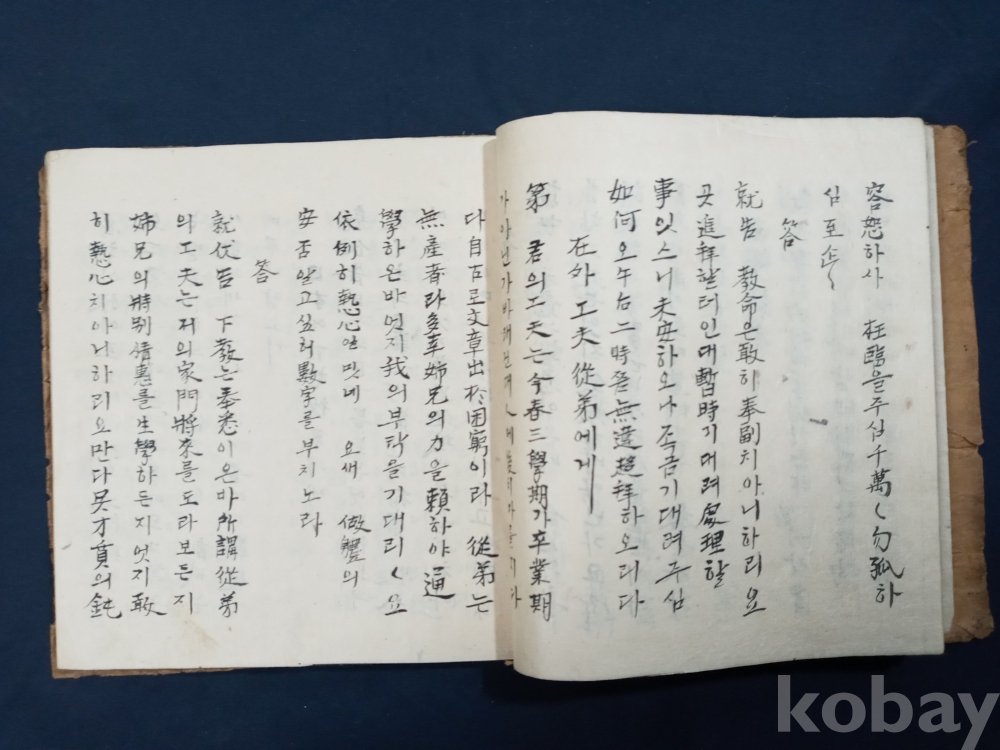 容恕하사 枉臨을주심千萬〻勿孤하
심至企〻
答
就告 敎命은敢히奉副치아니하리요
곳進拜할터인대暫時기대려處理할
事잇스니未安하오나족금기대려주심
如何오午后二時쯤無違趍拜하오리다
在外工夫從弟에게
第 君의工夫는今春三學期가卒業期
다自古로文章出於困窮이라 從弟는
無產者라多幸姉兄의力을賴하야通
學하온바엇지我의부탁을기대리〻요
依例히熱心엔맛네 요새 做體의
安否알고십허數字를부치노라
答
就伏告 下敎는奉悉이온바所謂從弟
의工夫는저의家門將來를도라보든지
姉兄의特別情惠를生覺하든지엇지敢
히熱心치아니하리요만다못才質의鈍
kobay